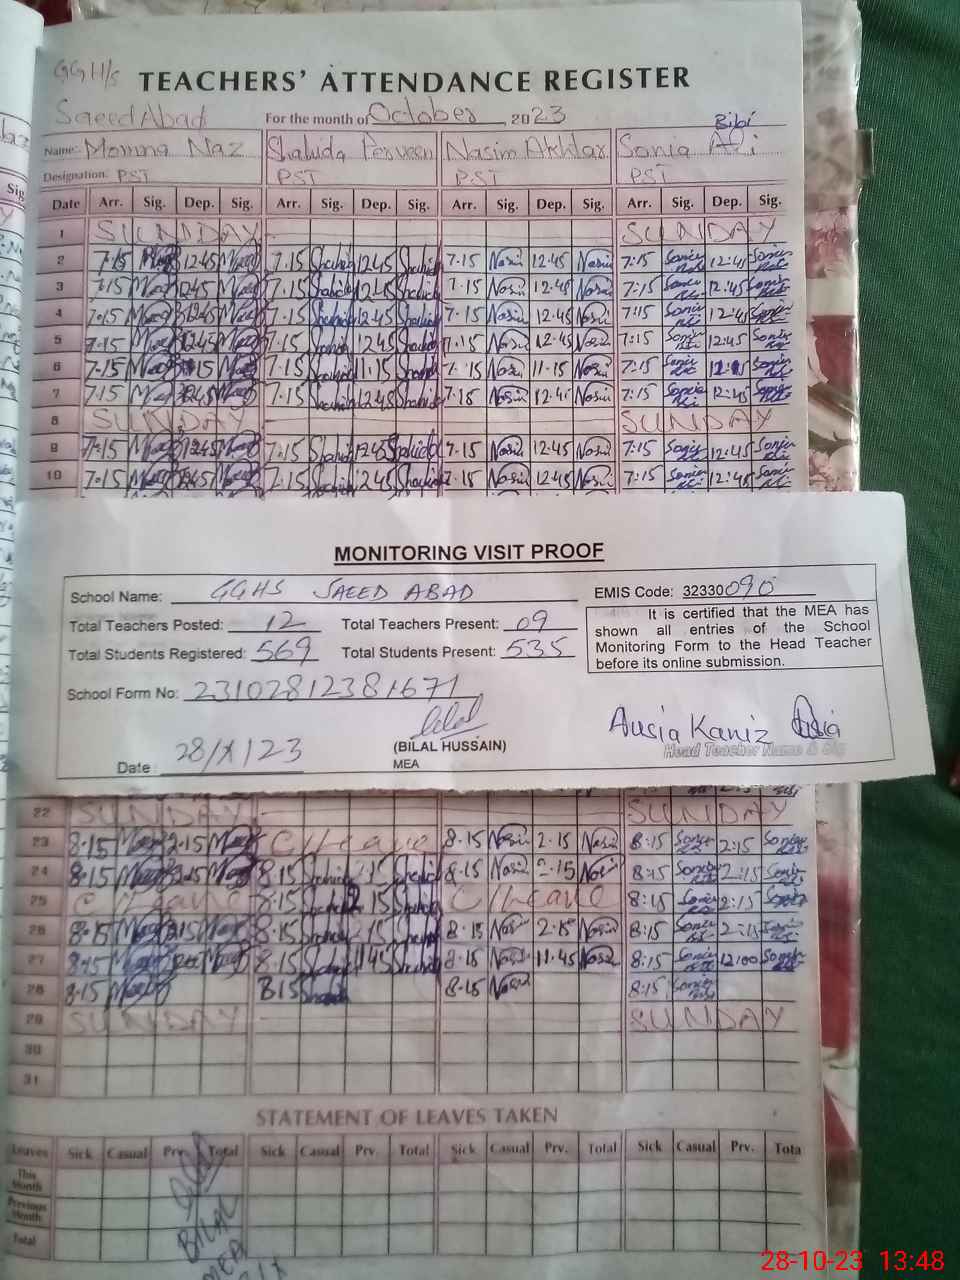 GGH/s TEACHERS' ATTENDANCE REGISTER
Saeed Abad For the month of October 2023
Name: Momna Naz Shahida Perveen Nasim Akhtar Sonia Bibi
Designation: PST PST PST PST
Date Arr. Sig. Dep. Sig. Arr. Sig. Dep. Sig. Arr. Sig. Dep. Sig. Arr. Sig. Dep. Sig.
1 SUNDAY SUNDAY
2 7.15 12.45 7.15 Shahida 12.45 Shahida 7.15 Nasim 12.45 Nasim 7:15 12:45
3 7.15 12.45 7.15 Shahida 12.45 Shahida 7.15 Nasim 12.45 Nasim 7:15 12:45
4 7.15 12.45 7.15 Shahida 12.45 Shahida 7.15 Nasim 12.45 Nasim 7:15 12:45
5 7.15 12.45 7.15 Shahida 12.45 Shahida 7.15 Nasim 12.45 Nasim 7:15 12:45
6 7.15 7.15 Shahida 11.15 Shahida 7.15 Nasim 11.15 Nasim 7:15
7 7.15 12.45 7.15 Shahida 12.45 Shahida 7.15 Nasim 12.45 Nasim 7:15 12:45
8 SUNDAY SUNDAY
9 7.15 12.45 7.15 Shahida 12.45 Shahida 7.15 Nasim 12.45 Nasim 7:15 12:45
10 7.15 12.45 7.15 Shahida 12.45 Shahida 7.15 Nasim 12.45 Nasim 7:15 12:45
MONITORING VISIT PROOF
School Name: GGHS SAEED ABAD EMIS Code: 32330090
Total Teachers Posted: 12 Total Teachers Present: 09
Total Students Registered: 569 Total Students Present: 535
It is certified that the MEA has
shown all entries of the School
Monitoring Form to the Head Teacher
before its online submission.
School Form No: 23102812381671
Bilal
Ausia Kaniz Ausia
Date: 28/X/23 (BILAL HUSSAIN) Head Teacher Name & Sig
MEA
22 SUNDAY SUNDAY
23 8.15 2.15 C/Leave 8.15 Nasim 2.15 Nasim 8:15 2:15
24 8.15 2.15 8.15 Shahida 2.15 Shahida 8.15 Nasim 2.15 Nasim 8:15 2:15
25 C/Leave 8.15 Shahida 2.15 Shahida C/Leave 8:15 2:15
26 8.15 2.15 8.15 Shahida 2.15 Shahida 8.15 Nasim 2.15 Nasim 8:15 2:15
27 8.15 8.15 Shahida 11.45 Shahida 8.15 Nasim 11.45 Nasim 8:15 12:00
28 8.15 8.15 Shahida 8.15 Nasim 8:15
29 SUNDAY SUNDAY
30
31
STATEMENT OF LEAVES TAKEN
Leaves Sick Casual Prv. Total Sick Casual Prv. Total Sick Casual Prv. Total Sick Casual Prv. Tota
This Month
Previous Month
Total
BILAL
MEA
28-10-23 13:48